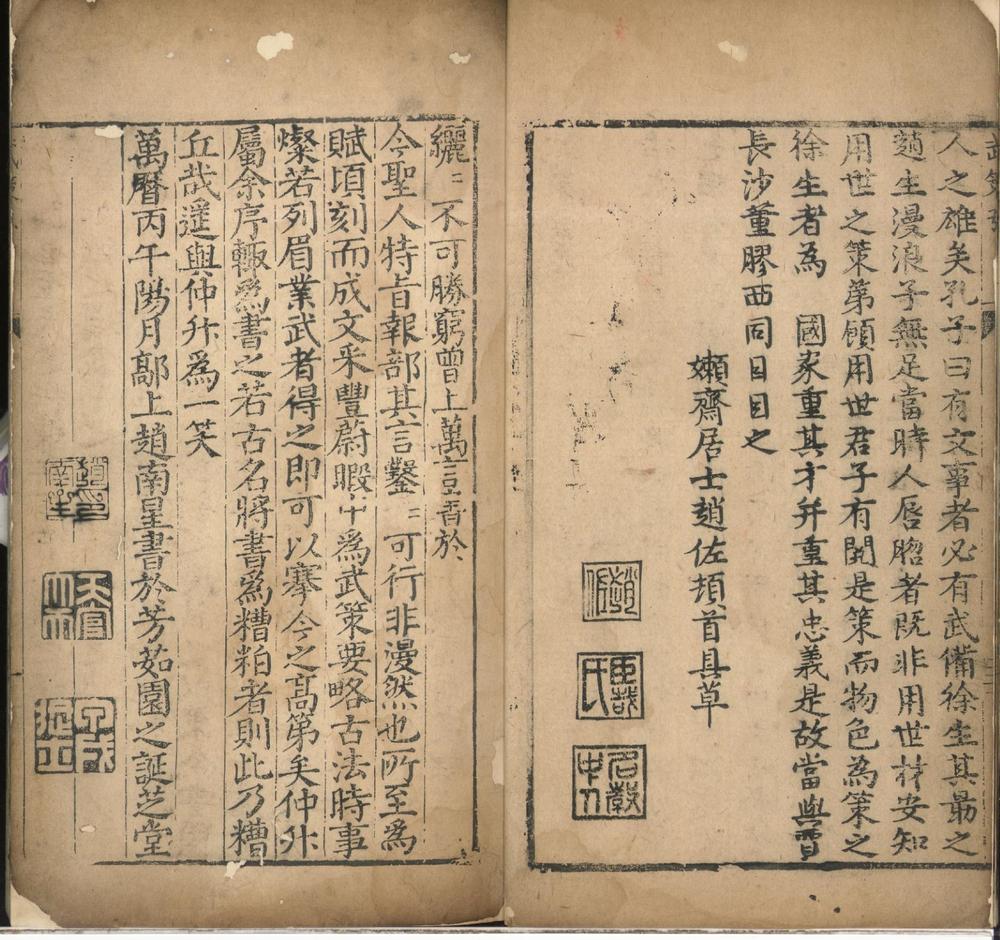 人之雄矣孔子曰有文事者必有武備徐生其勗之
趙生漫浪子無足當時人唇膾者既非用世材安知
用世之策第願用世君子有閱是策而物色為策之
徐生者為 國家重其才幷重其忠義是故當與賈
長沙董膠西同日目之
嬾齋居士趙佐頓首具草
趙佐
臣哉氏
名教中人
纚〻不可勝窮曾上萬言書於
今聖人特旨報部其言鑿〻可行非漫然也所至爲
賦頃刻而成文采豐蔚暇中爲武策要略古法時事
燦若列眉業武者得之即可以搴今之高第矣仲升
屬余序輙爲書之若古名將書爲糟粕者則此乃糟
丘哉遥與仲升爲一笑
萬曆丙午陽月鄗上趙南星書於芳茹園之誕芝堂
趙印南星
天官